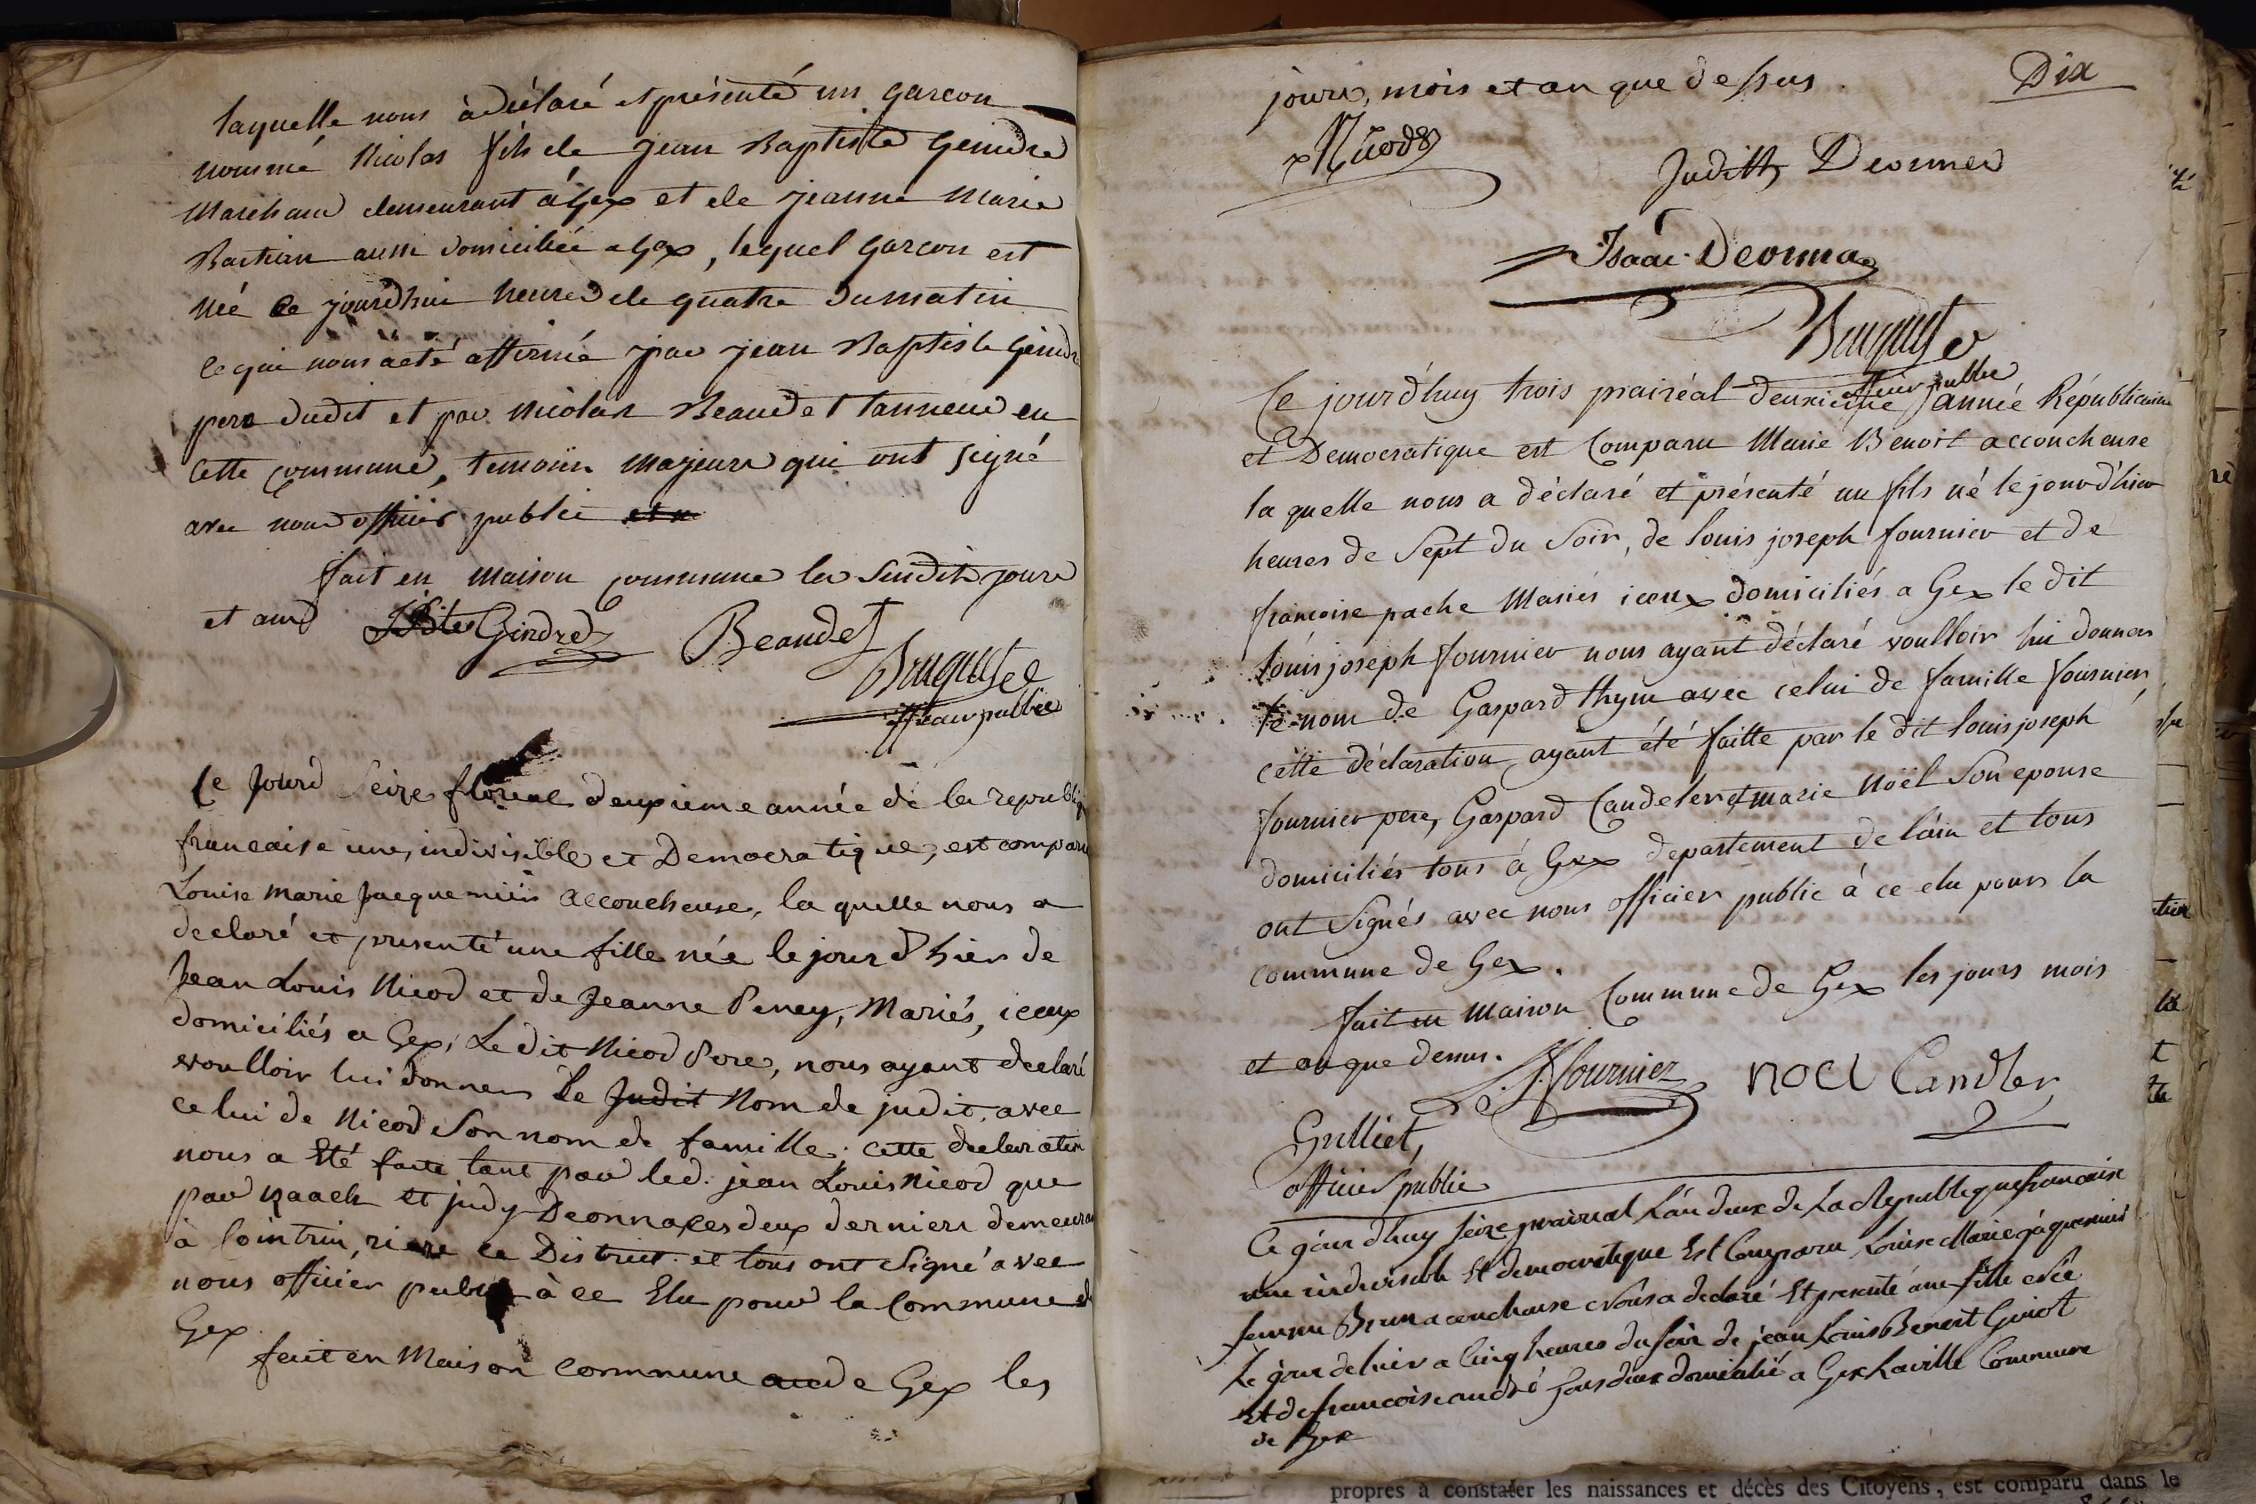 laquelle nous à déclaré et présenté un garcon
nommé Nicolas fils de jean Baptiste Geindre
Marchand demeurant à Gex et de jeanne Marie
Bastian aussi domiciliée a Gex, lequel garcon est
né ce jourdhui heures de quatre du matin
ce qui nous a eté affirmé par jean Baptiste Geindre
pere dudit et par Nicolas Beaudet tanneur en
cette commune, temoins majeurs qui ont signé
avec nous officier public et n
fait en Maison commune les susdits jours
et ans JBte Gindre Beaudet
officier public
Ce Jourd Seize floreal deuxieme année de la republiq
francaise une, indivisible et Democratique, est comparu
Louise marie Jacquemin accoucheuse, la quelle nous a
declaré et presenté une fille née le jour d'hier de
Jean Louis Nicod et de Jeanne Peney, Mariés, iceux
domiciliés a Gex, Le dit Nicod Pere, nous ayant declaré
voulloir lui donner le Judit Nom de judit, avec
celui de Nicod Son nom de famille; cette declaration
nous a Eté faite tant par led. jean Louis Nicod que
par Isaack et judy Deonna ces deux derniers demeurant
à Cointrin, riere ce District et tous ont signé avec
nous officier public à ce Elu pour la Commune de
Gex
fait en Maison commune de Gex les
Dix
jours, mois et an que dessus.
Nicod
Judith Deonna
Isaac Deonna
officier public
Ce jourd'huy trois prairéal deuxieme année Républicaine
et Democratique est Comparu Marie Benoit accoucheuse
la quelle nous a déclaré et présenté un fils né le jour d'hier
heures de Sept du Soir, de louis joseph fournier et de
francoise pache Mariés iceux domiciliés a Gex le dit
louis joseph fournier nous ayant déclaré voulloir lui donner
le nom de Gaspard thym avec celui de famille fournier,
cette déclaration ayant été faitte par le dit louis joseph
fournier pere, Gaspard Candeler et marie Noël Son epouse
domiciliés tous à Gex département de l'ain et tous
ont Signés avec nous officier public à ce elu pour la
commune de Gex.
fait en Maison Commune de Gex les jours mois
et an que dessus. fournier noel Candler
Gulliet,
officier public
Ce jourdhuy Seize prairial L'an deux de La Republique francaise
une indivisible Et democratique Est Comparu Louise Marie jaquemin
femme Brun accoucheuse Nous a declaré Et presenté une fille Née
Le jour dehier a Cinq heures du Soir de jean Louis Benoit Girod
Et de francoise andré tous deux domicilié a Gex Laville Commune
de Gex
propres à constater les naissances et décès des Citoyens, est comparu dans le